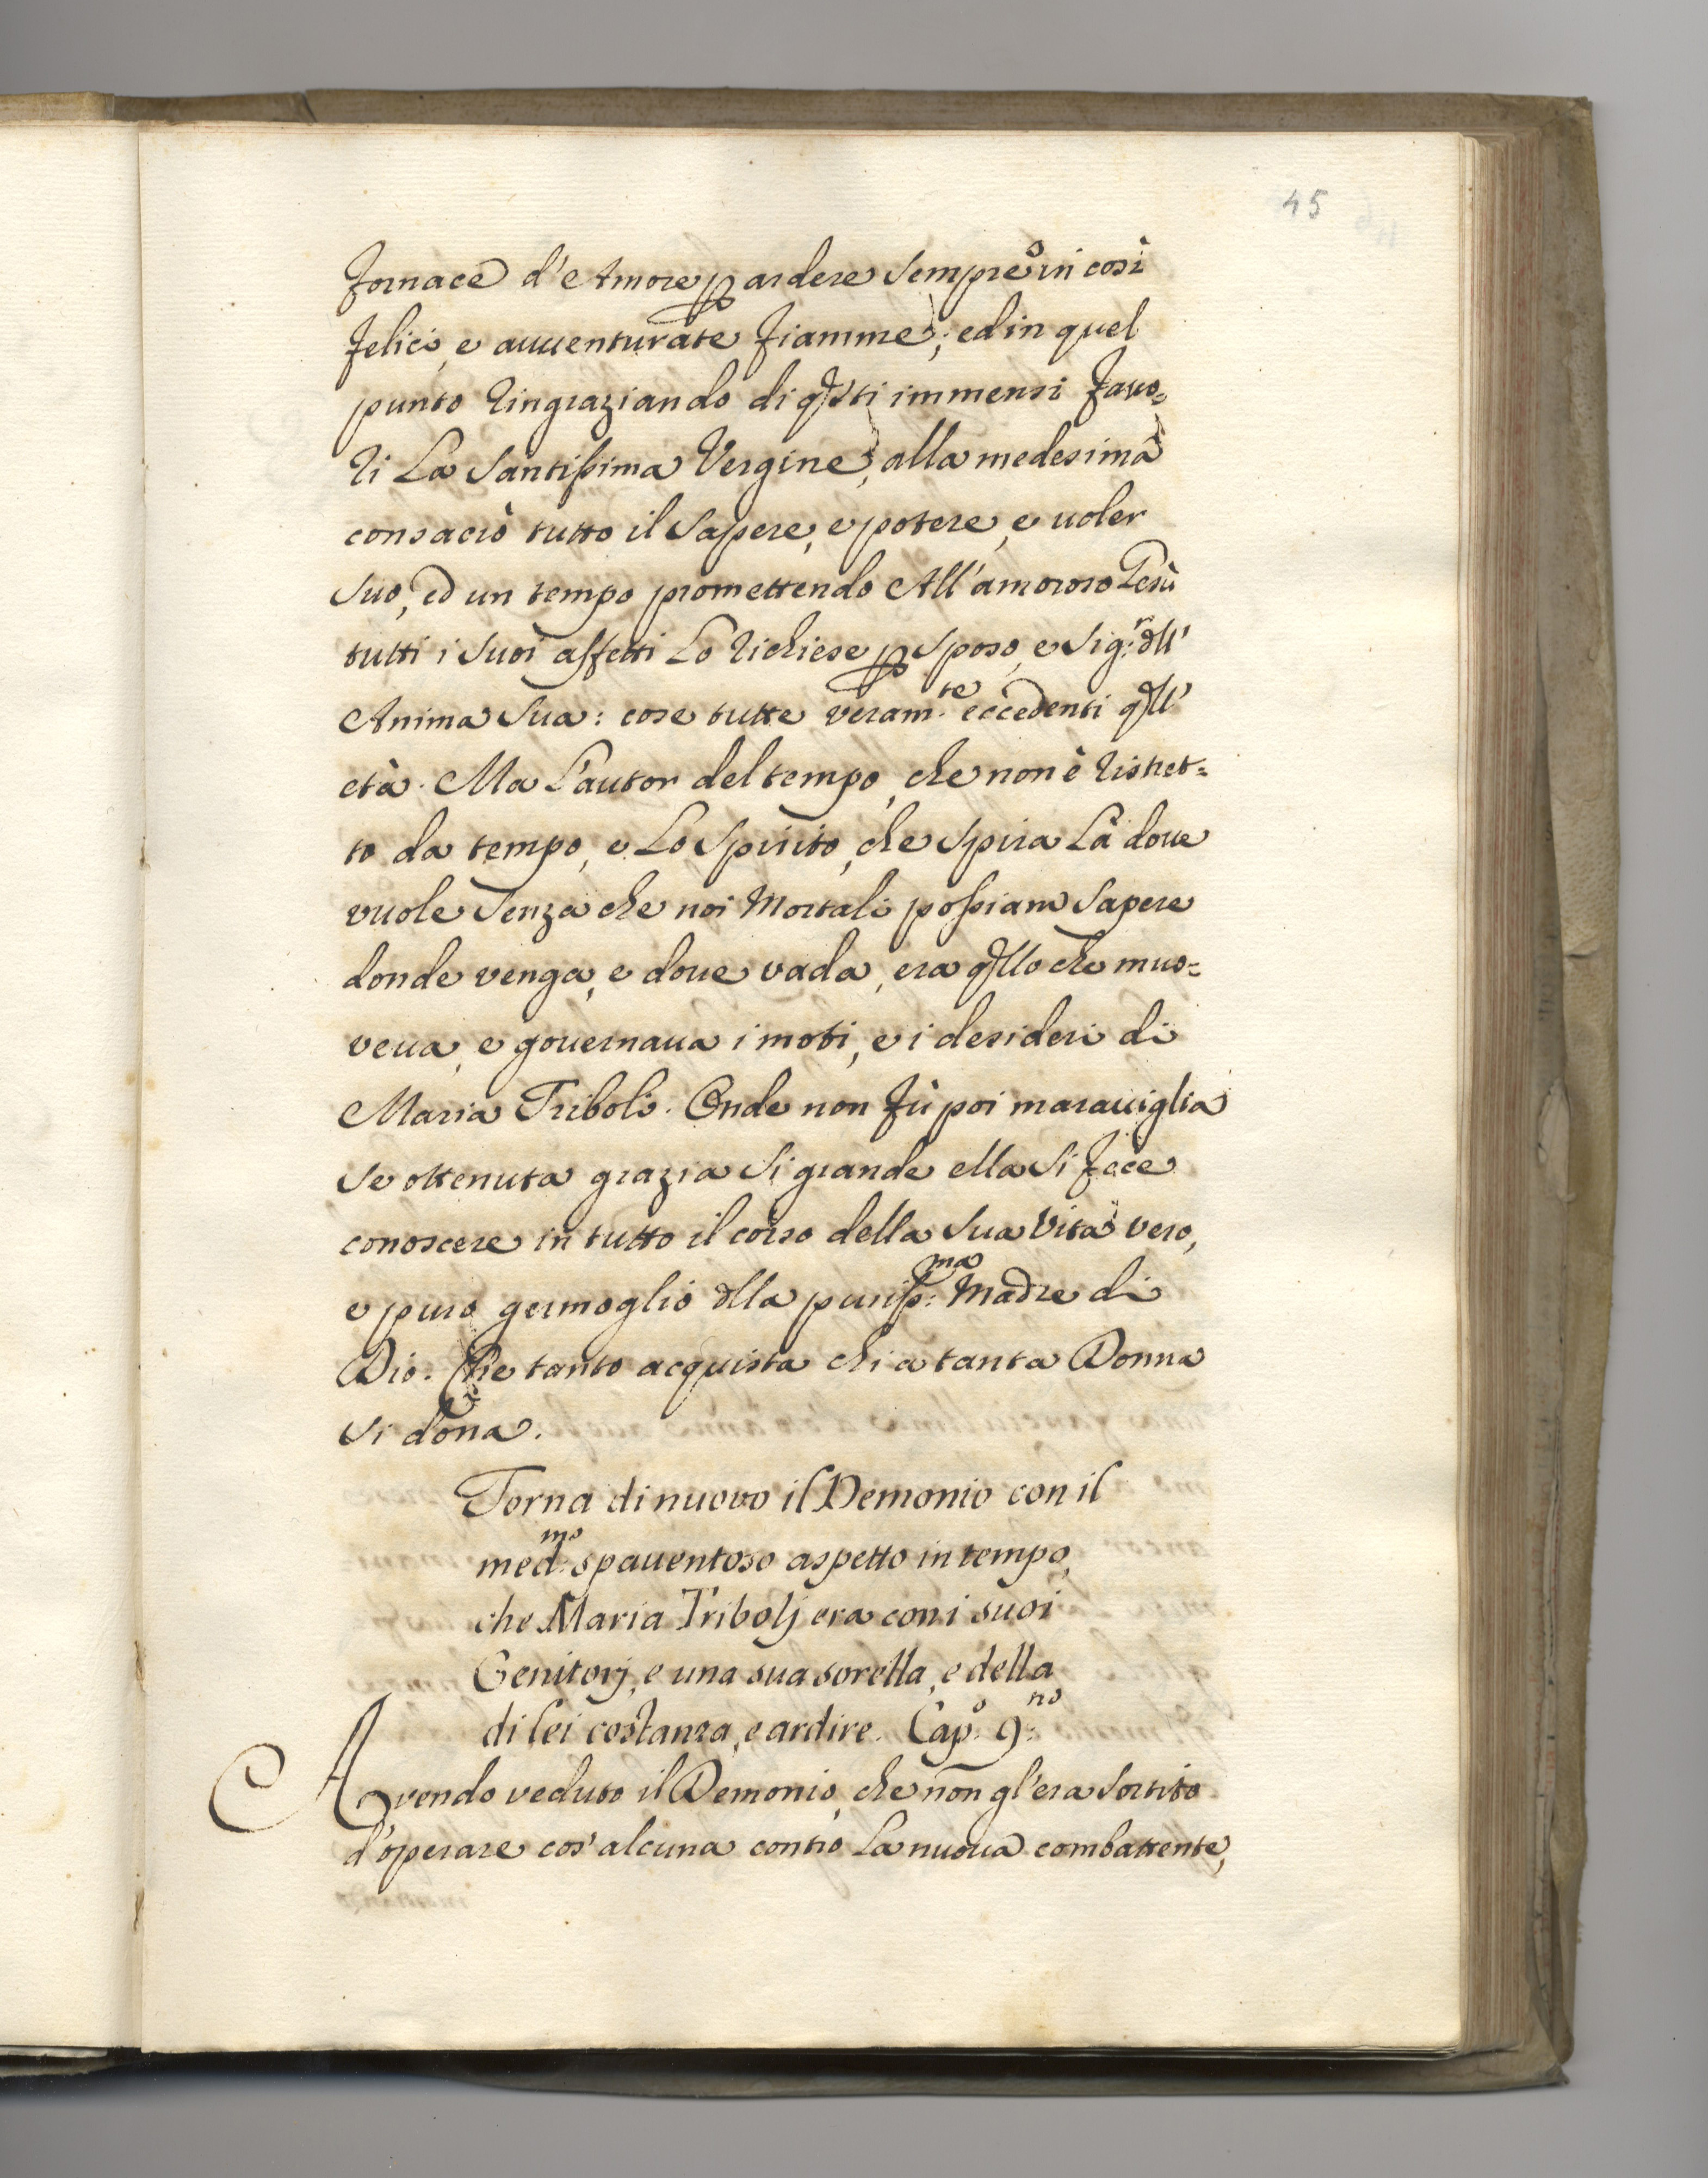 45
fornace d'Amore p ardere sempre in così
felici, e auuenturate fiamme; ed in quel
punto ringraziando di qsti immensi fauo=
ri la Santissima Vergine, alla medesima
consacrò tutto il sapere, e potere, e uoler
suo, ed un tempo promettendo All'amoroso Gesù
tutti i suoi affetti lo richiese p sposo, e Sig:r dll'
Anima sua: cose tutte veram.te eccedenti qll'
età. Ma l'autor del tempo, che non è ristret=
to da tempo, e lo Spirito, che spira là doue
vuole senza che noi Mortali possiam sapere
donde venga, e doue vada, era qllo che muo=
veua, e gouernaua i moti, e i desideri di
Maria Triboli. Onde non fù poi marauiglia
se ottenuta grazia si grande ella si fece
conoscere in tutto il corso della sua vita vero,
e puro germoglio dlla puriss:ma Madre di
Dio. Che tanto acquista chi a tanta Donna
si dona.
Torna di nuovo il Demonio con il
med:mo spauentoso aspetto in tempo,
che Maria Tribolj era con i suoi
Genitorj, e una sua sorella, e della
di lei costanza, e ardire. Cap:o 9:no
Avendo veduto il Demonio, che non gl'era sortito
d'operare cos'alcuna contro la nuoua combattente,